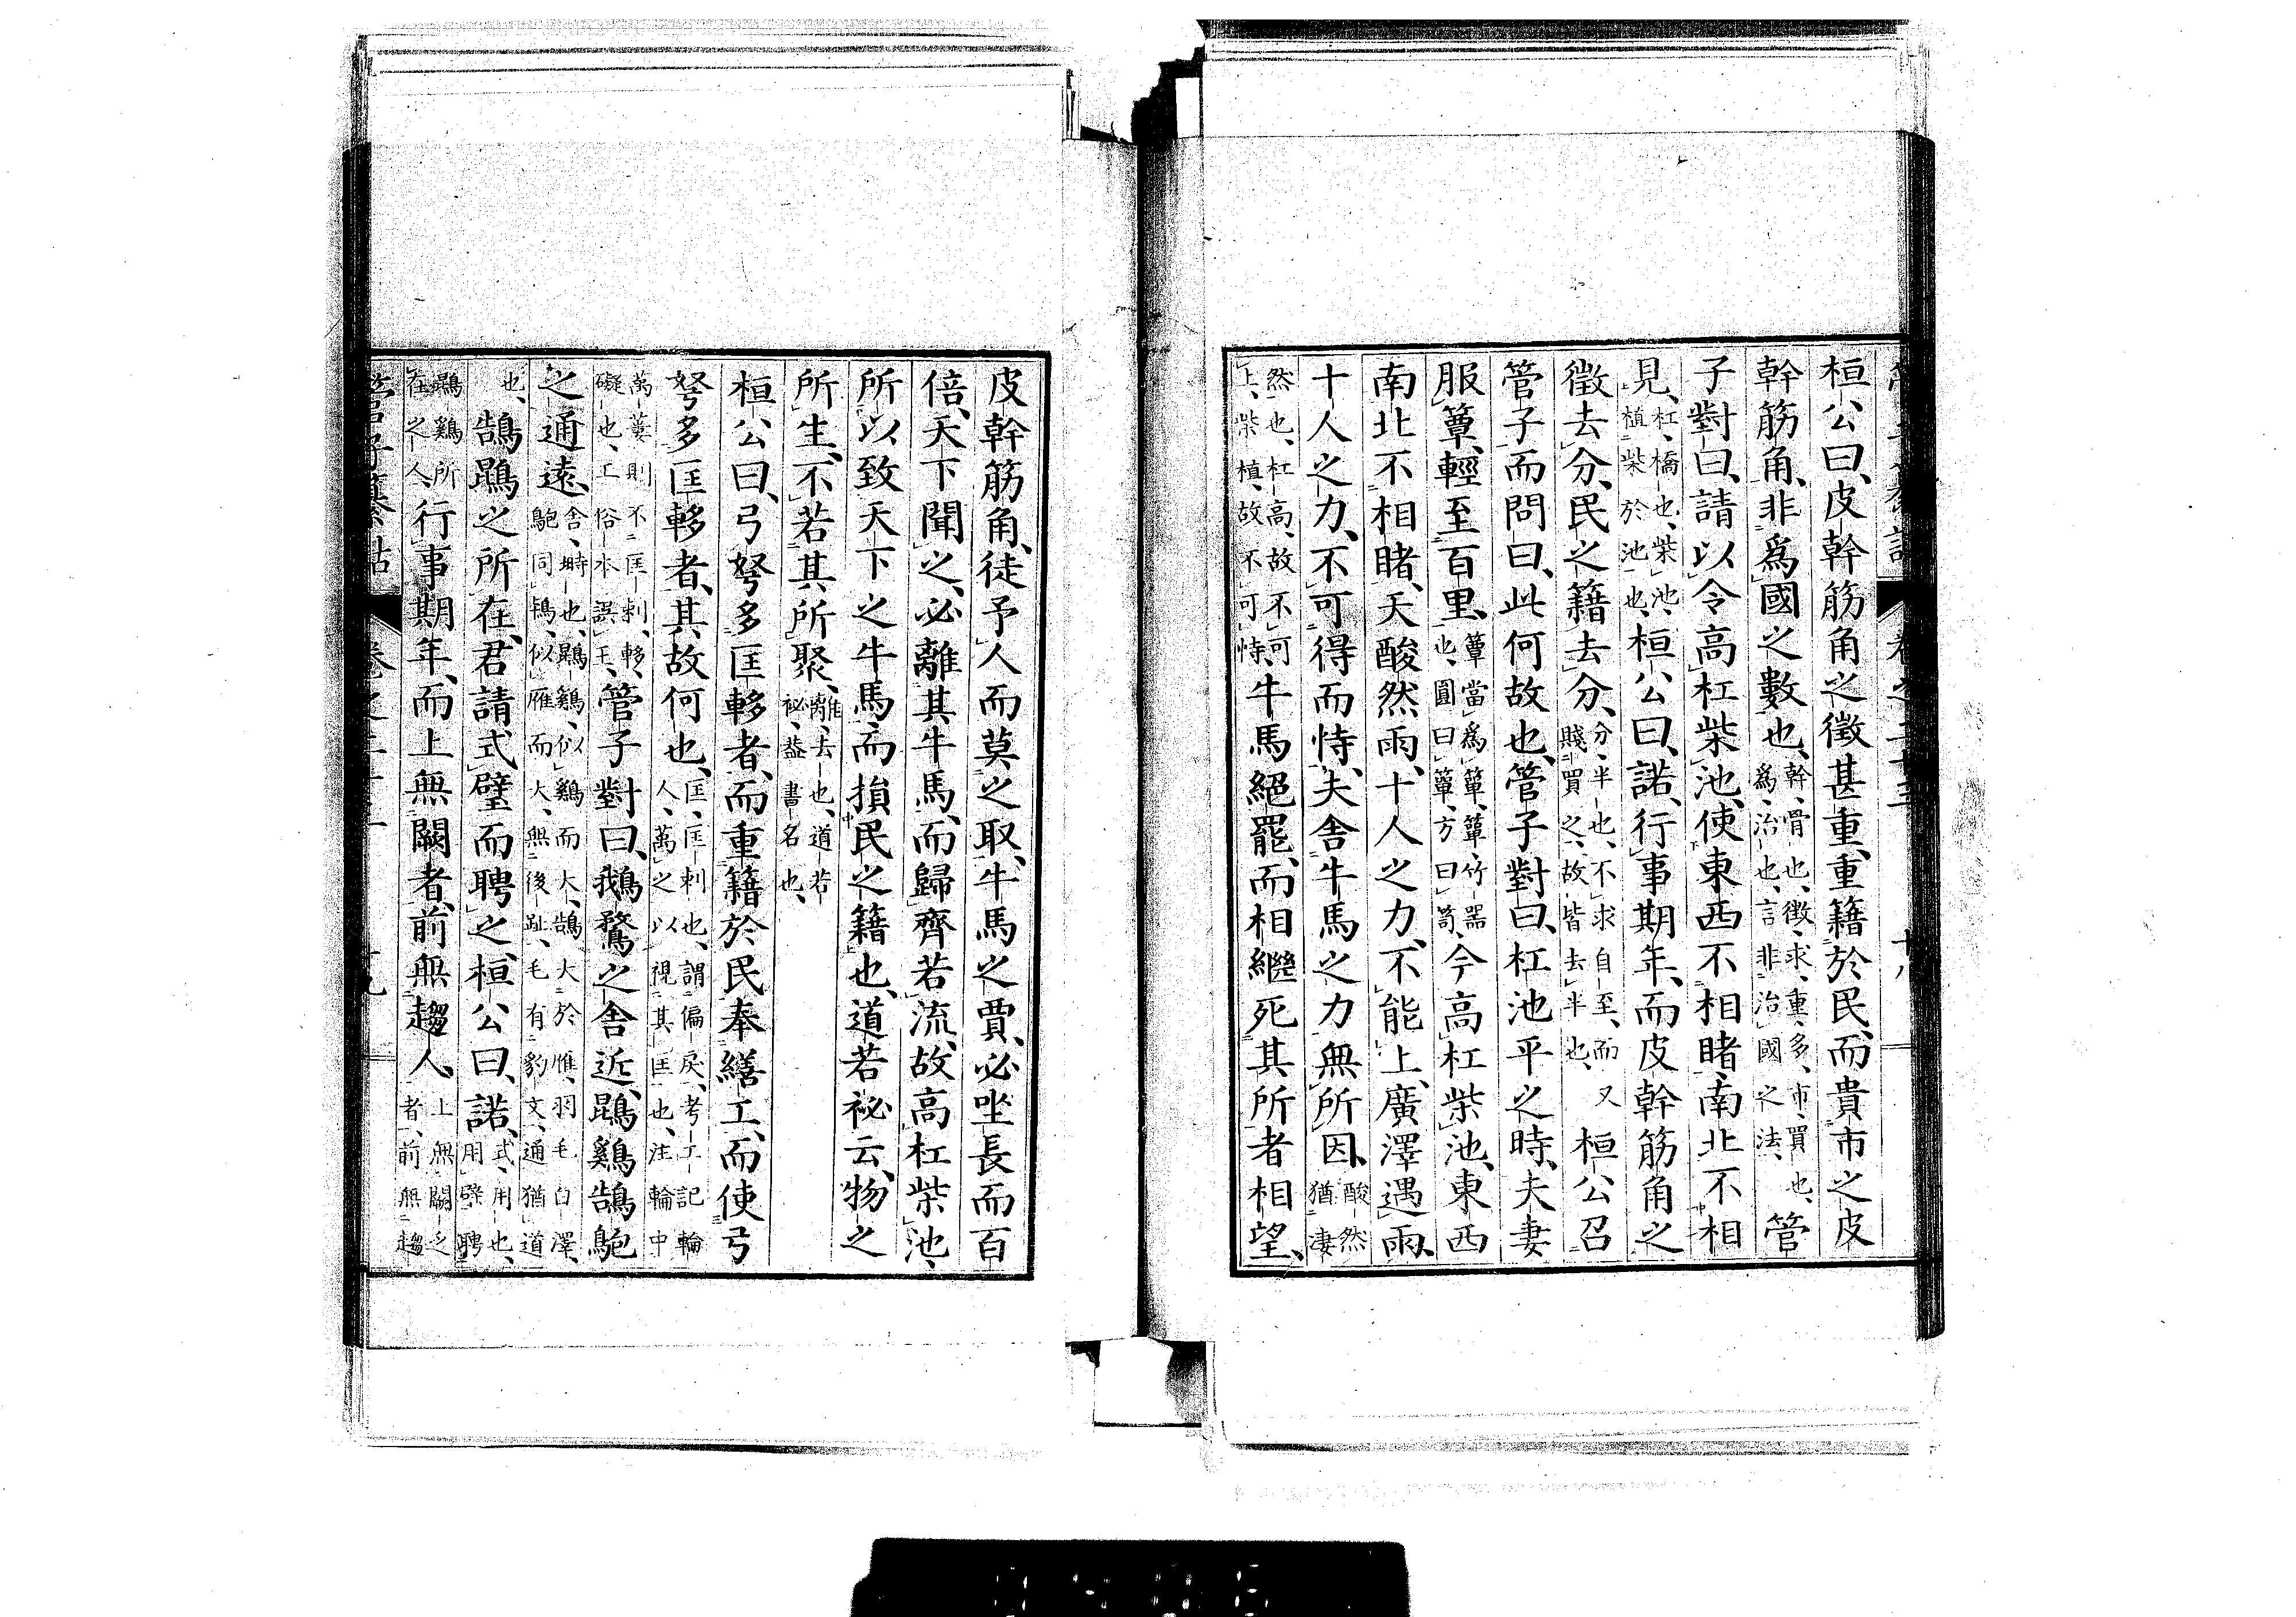 桓公曰、皮幹筋角之徵甚重、重籍於民、而貴市之皮
幹筋角、非爲國之數也、幹、骨也、徵、求、重、多、市、買也、爲、治也、言非治國之法、管
子對曰、請以令高杠柴池、使東西不相睹、南北不相
見、杠、橋也、柴池、植柴於池也、桓公曰、諾、行事期年、而皮幹筋角之
徵去分、民之籍去分、分、半也、不求自至、而又賤買之、故皆去半也、桓公召
管子而問曰、此何故也、管子對曰、杠池平之時、夫妻
服簟、輕至百里、簟當爲簞、簞、竹器也、圓曰簞、方曰笥、今高杠柴池、東西
南北不相睹、天酸然雨、十人之力、不能上、廣澤遇雨、
十人之力、不可得而恃、夫舍牛馬之力無所因、酸然猶凄
然也、杠高、故不可上、柴植、故不可恃、牛馬絕罷、而相繼死其所者相望、
皮幹筋角、徒予人而莫之取、牛馬之賈、必坐長而百
倍、天下聞之、必離其牛馬、而歸齊若流、故高杠柴池、
所以致天下之牛馬、而損民之籍也、道若祕云、物之
所生、不若其所聚、離、去也、道若祕、蓋書名也、
桓公曰、弓弩多匡軫者、而重籍於民奉繕工、而使弓
弩多匡軫者、其故何也、匡、匡剌也、謂偏戾、考工記輪人、萬之以視其匡也、注輪中
萬蔞則不匡剌、軫、礙也、工俗本誤王、管子對曰、鵝鶩之舍近、鵾鷄鵠鴇
之通遠、舍、塒也、鵾鷄、似鷄而大、鵠大於雁、羽毛白澤、鴇同鴇、似雁而大、無後趾、毛有豹文、通猶道
也、鵠鵾之所在、君請式璧而聘之、桓公曰、諾、式、用也、用璧聘
鵾鷄所在之人、行事期年、而上無闕者、前無趨人、上無闕乏者、前無趨